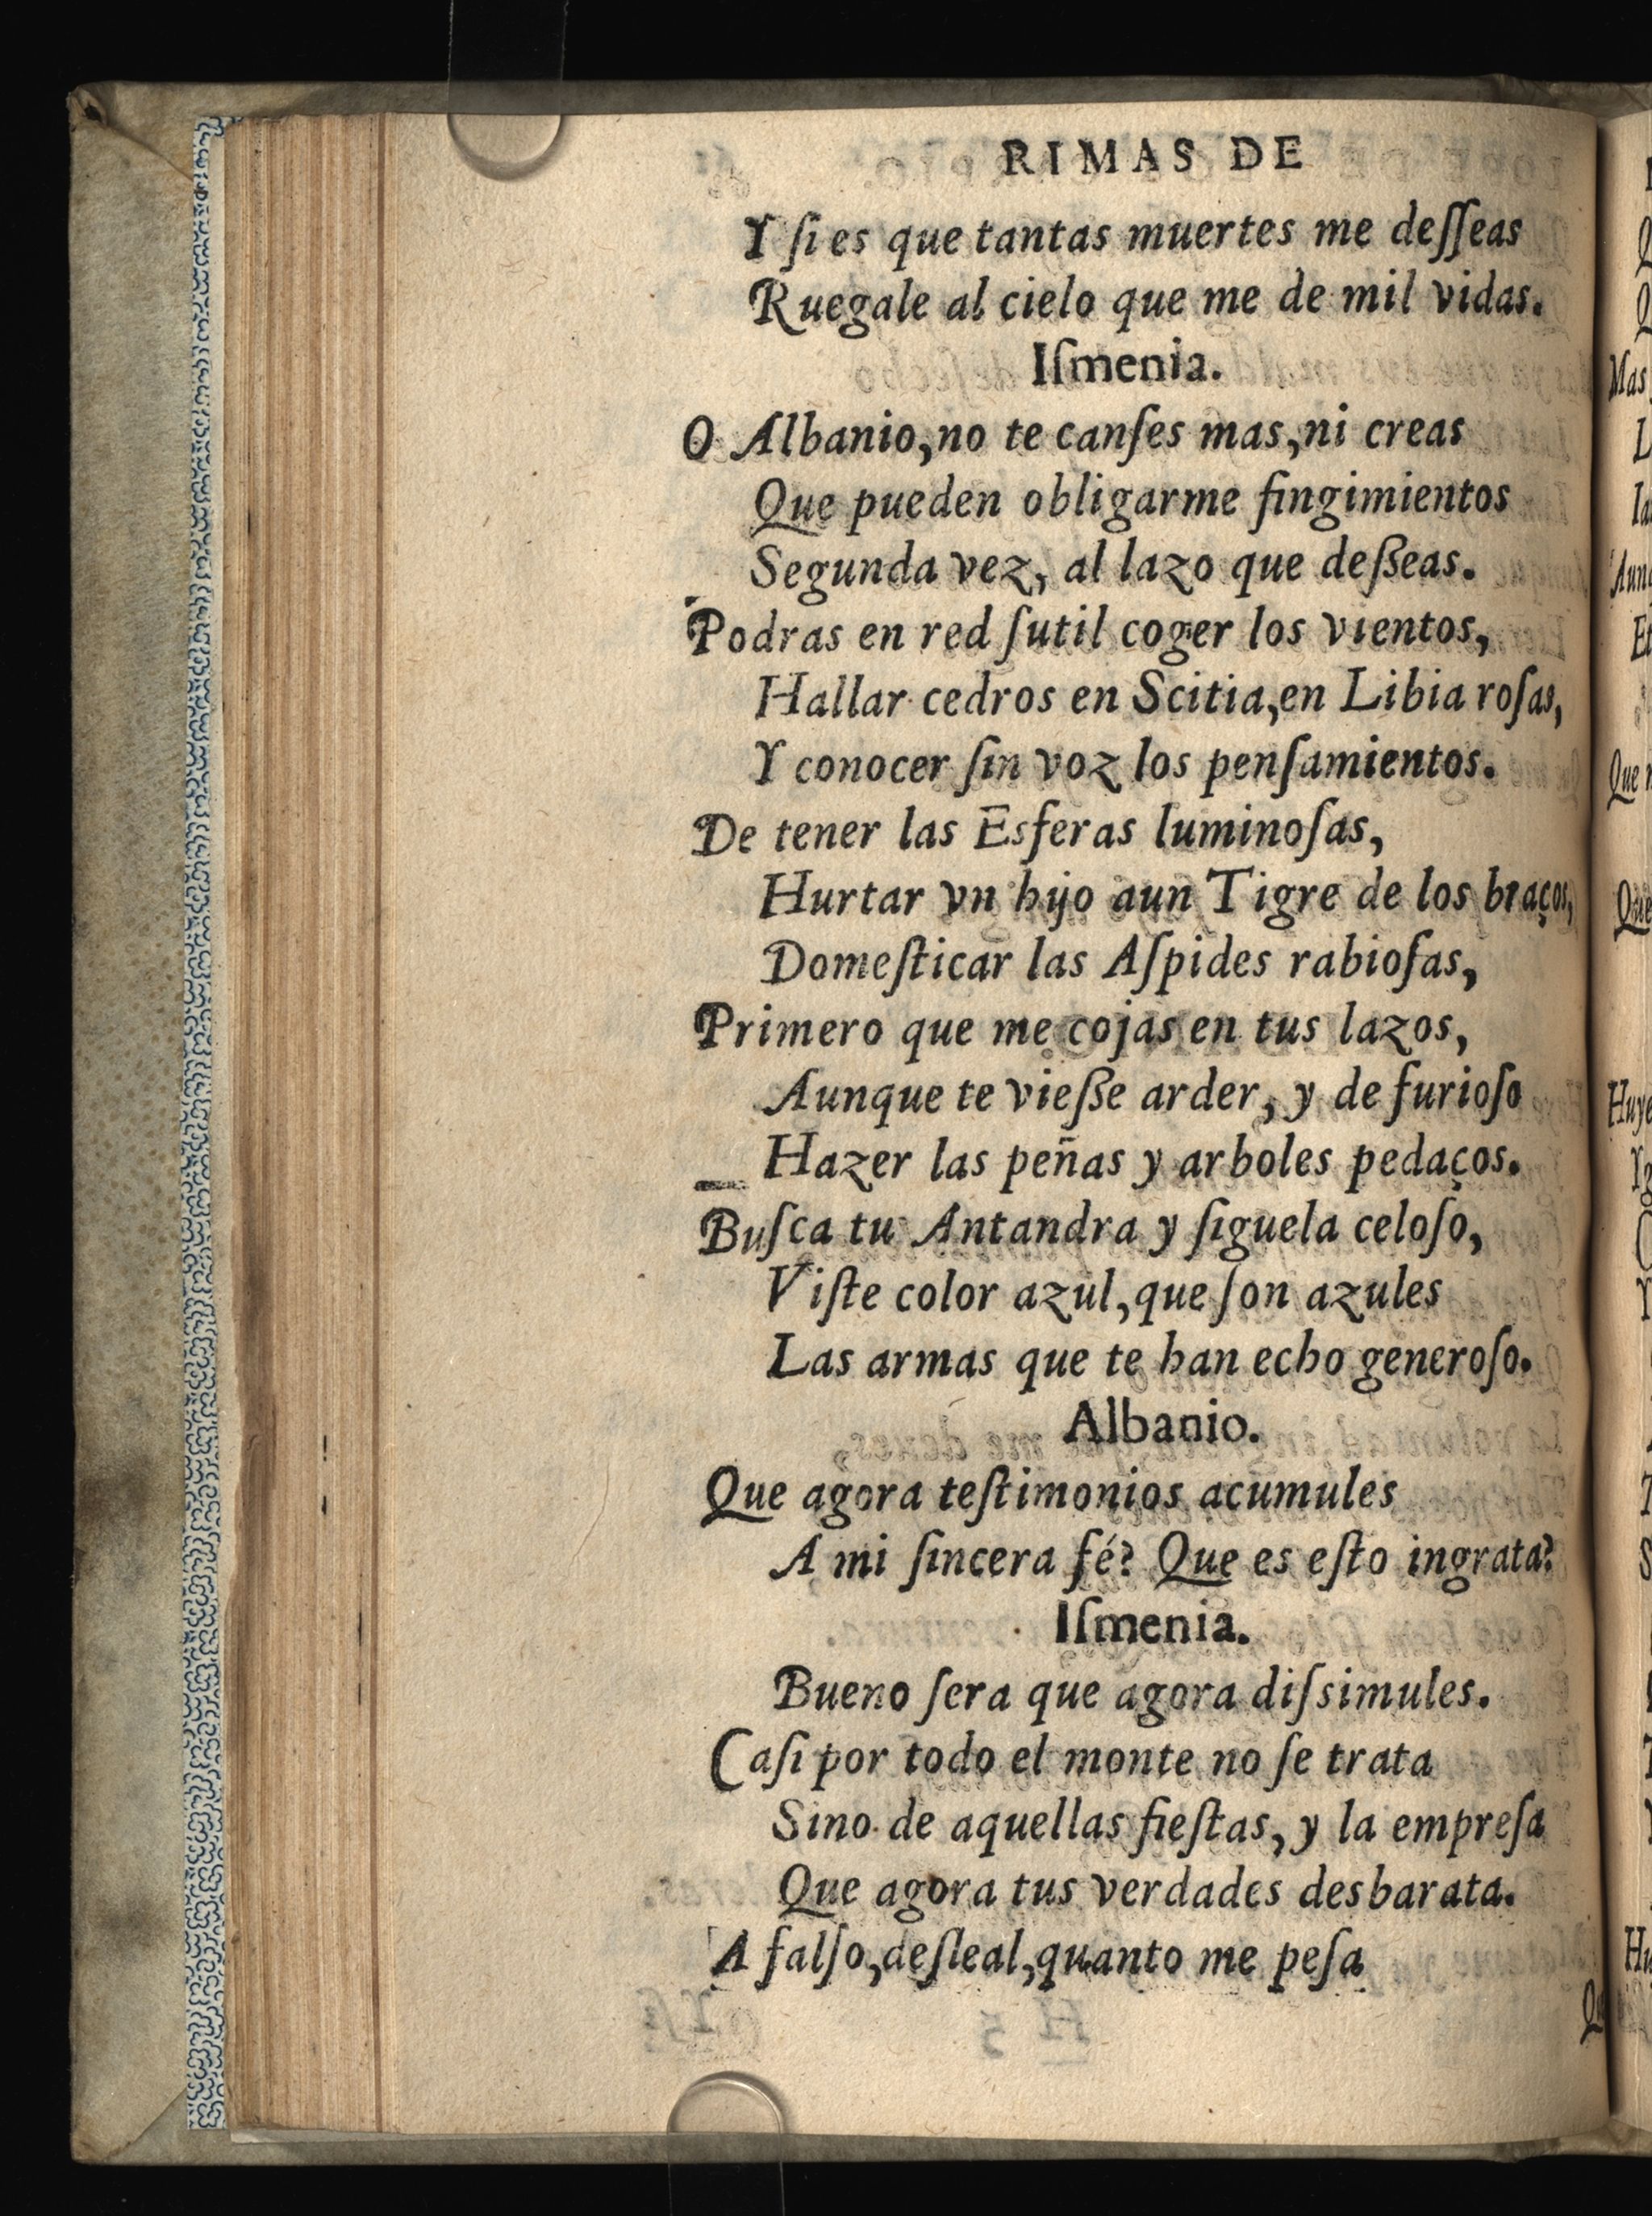 RIMAS DE
Y ſi es que tantas muertes me deſſeas
Ruegale al cielo que me de mil vidas.
Iſmenia.
O Albanio, no te canſes mas, ni creas
Que pueden obligarme fingimientos
Segunda vez, al lazo que deßeas.
Podras en red ſutil coger los vientos,
Hallar cedros en Scitia, en Libia roſas,
Y conocer ſin voz los penſamientos.
De tener las Esferas luminoſas,
Hurtar vn hijo aun Tigre de los braços,
Domeſticar las Aſpides rabioſas,
Primero que me cojas en tus lazos,
Aunque te vieße arder, y de furioſo
Hazer las peñas y arboles pedaços.
Buſca tu Antandra y ſiguela celoſo,
Viſte color azul, que ſon azules
Las armas que te han echo generoſo.
Albanio.
Que agora teſtimonios acumules
A mi ſincera fé? Que es eſto ingrata?
Iſmenia.
Bueno ſera que agora diſsimules.
Caſi por todo el monte no ſe trata
Sino de aquellas fieſtas, y la empreſa
Que agora tus verdades desbarata.
A falſo, deſleal, quanto me peſa